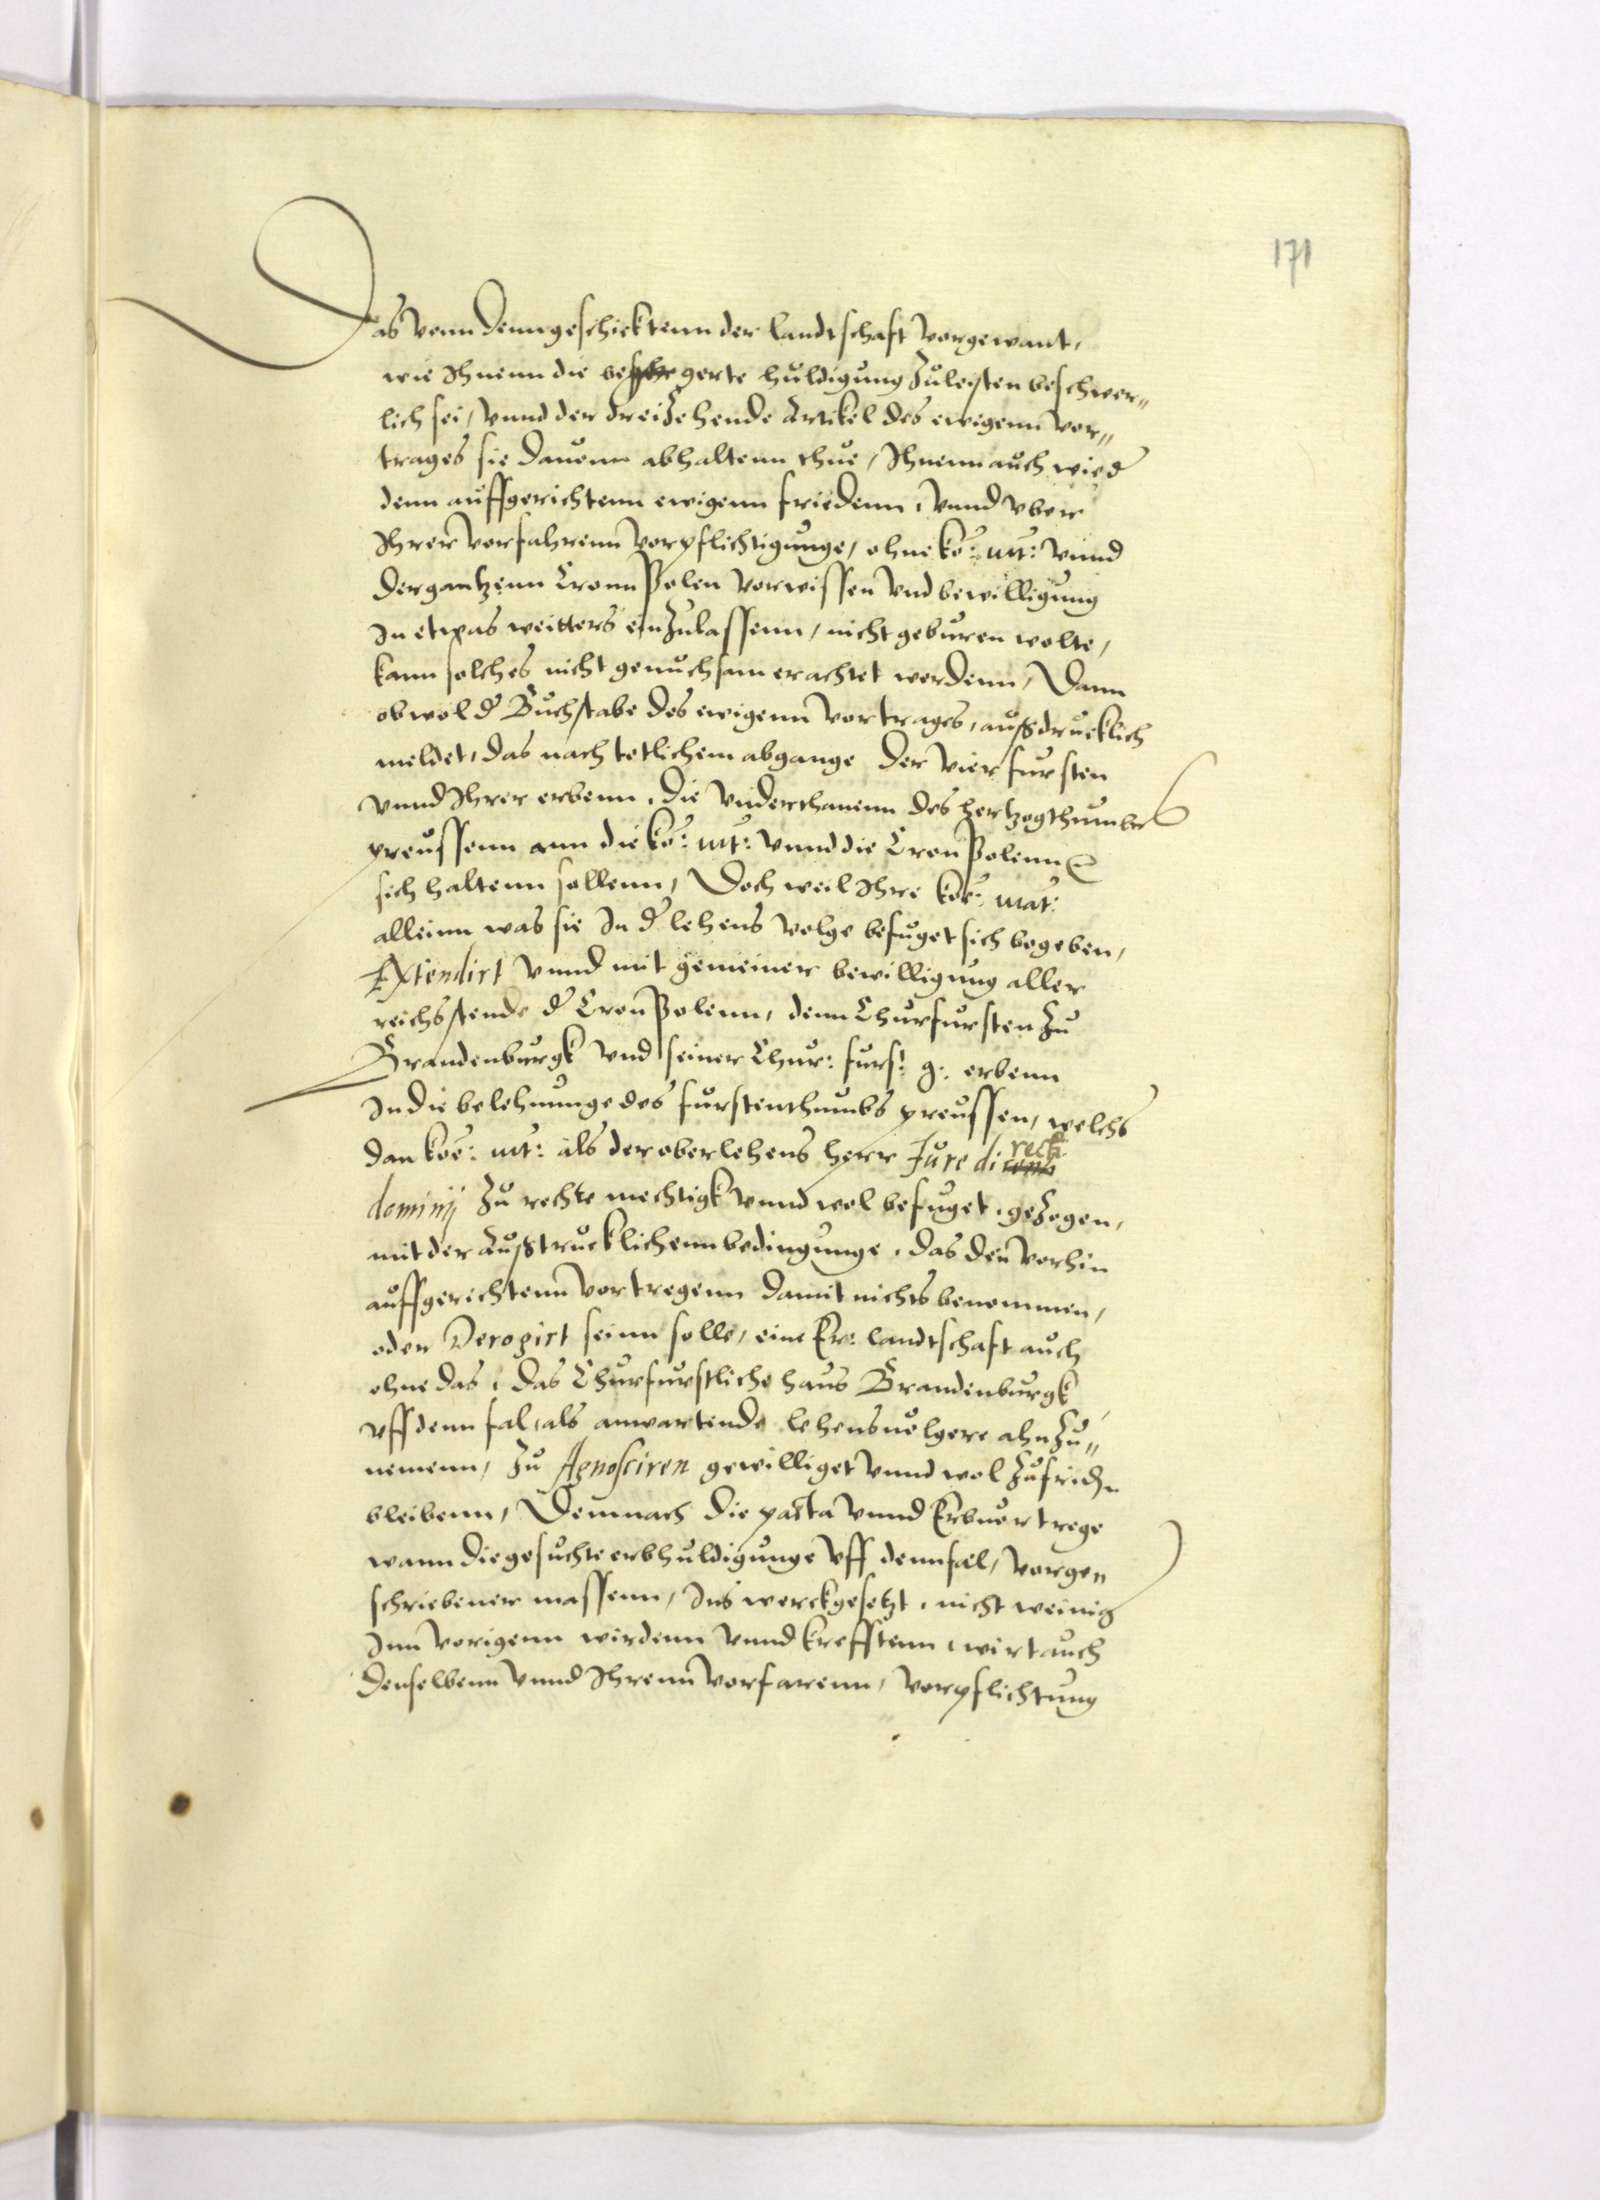 171
Das vonn denn geschicktenn der landtschaft vorgewant,
wie Ihnenn die begerte huldigung zuleisten beschwer„
lich sei, vnnd der dreizehende Artickel des ewigenn ver„
trages sie dauonn abhaltenn thue, Ihnenn auch wied
denn auffgerichtenn ewigenn friedenn, vnnd vber
Ihrer vorfahrenn vorpflichtigunge, ohne ko: mt: vnnd
der gantzenn Cronn Polen vorwissen vnd bewilligung
In etwas weitters einzulassenn, nicht geburen wolte,
kann solches nicht genuchsam erachtet werdenn, Dann
ob wol d Buchstabe des ewigenn vortrages, außdrucklich
meldet, das nach totlichem abgange der vier fursten
vnnd Ihrer erbenn, die vnderthanenn des hertzogthumbs
preussenn ann die ko: mt: vnnd die Cron Polenn
sich haltenn sollenn, Doch weil Ihre koe: mat:
alleinn was sie In d lehens volge befuget sich begeben,
Extendirt vnnd mit gemeiner bewilligung aller
reichsstende d Cron Polenn, denn Churfursten zu
Brandenburgk vnd seiner Chur: furs: g: erbenn
In die belehnunge des furstenthumbs preussen, welchs
dan koe: mt: als der oberlehens herr Jure directi
dominij zu rechte mechtigk vnnd wol befuget, gezogen,
mit der Außtrucklichenn bedingunge, das den vorhin
auffgerichtenn vortregenn damit nichts benommen,
oder Derogirt seinn solle, eine Er: landtschaft auch
ohne das, das Churfurstliche haus Brandenburgk
vff denn fal, als anwartende lehensuolgere ahnzu„
nemenn, zu Agnosciren gewilliget vnnd wol zufriden
bleibenn, Demnach die pacta vnnd Erbuortrege
wann die gesuchte erbhuldigunge vff denn fal, vorge„
schriebener massenn, Ins werck gesetzt, nicht weinig
Inn vorigenn wirdenn vnnd krefftenn, wirt auch
denselbenn vnnd Ihrenn vorfarenn, vorpflichtung